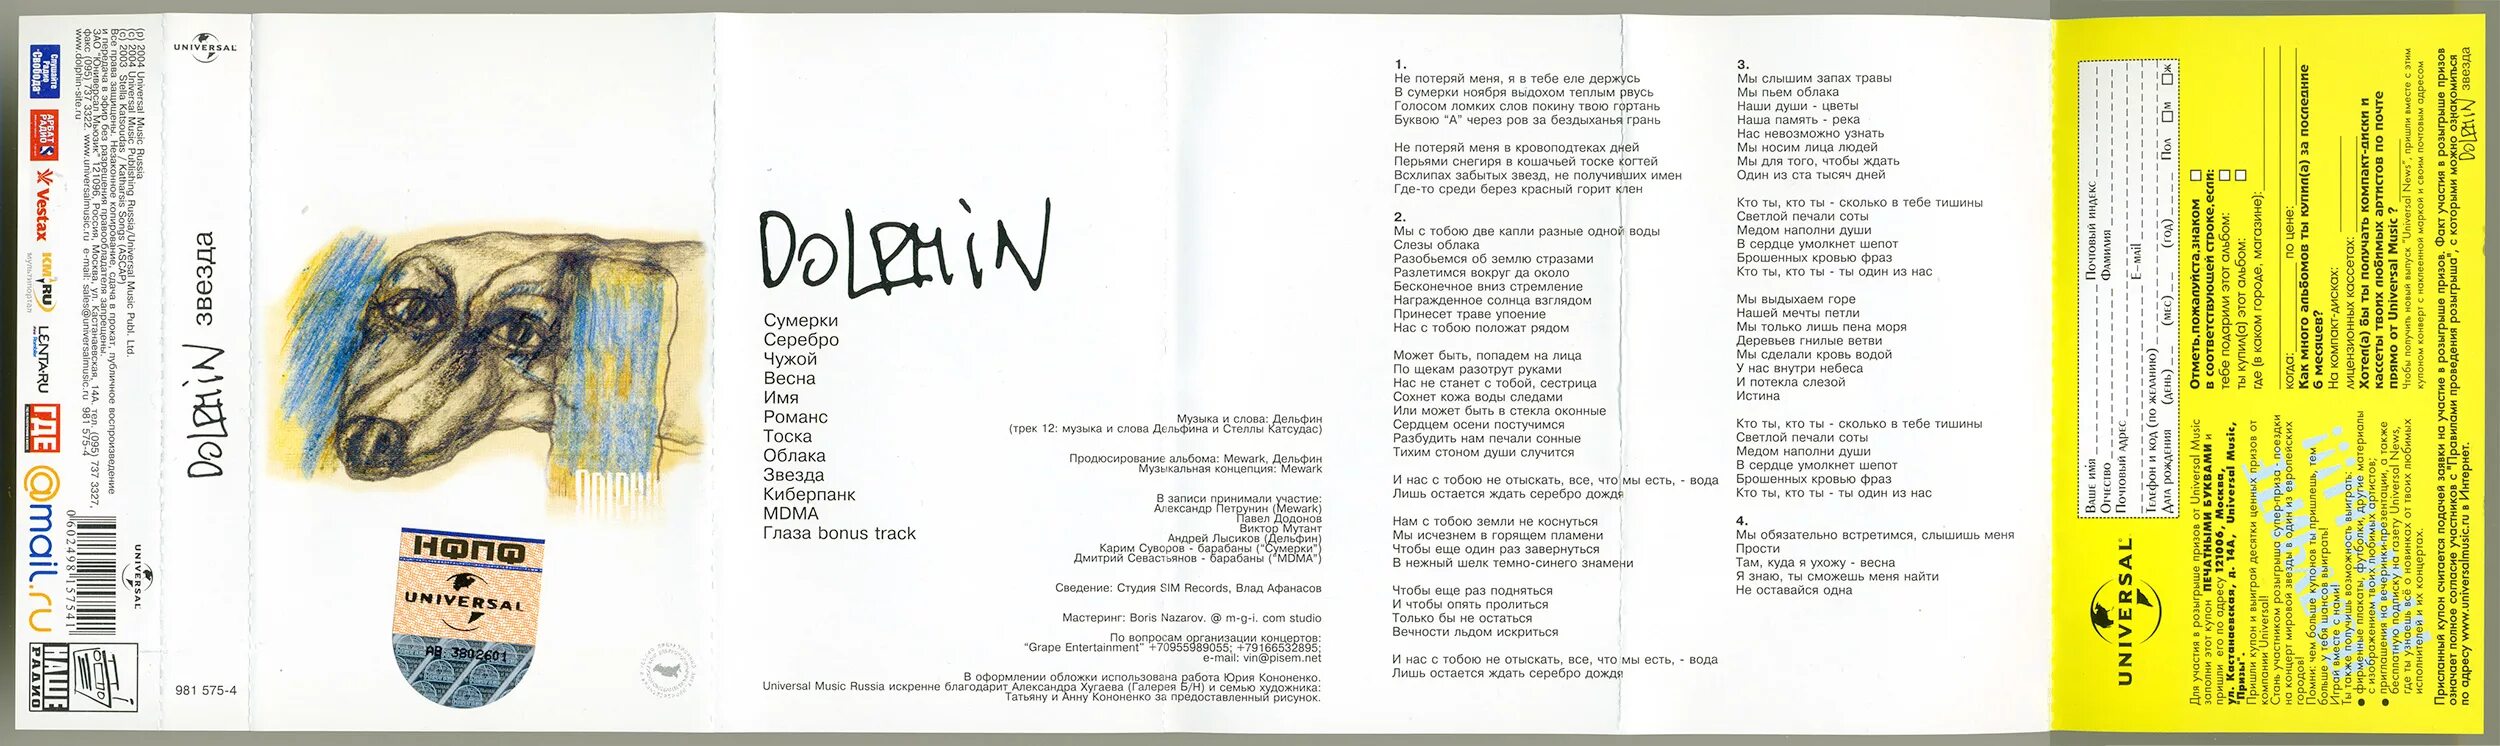 Слушайте
Радио
"Свобода"
АРБАТ
РАДИО
Vestax
КМ.RU
мультипортал
LENTA.RU
ГДЕ
@mail.ru
НАШЕ
РАДИО
(p) 2004 Universal Music Russia
(c) 2004 Universal Music Publishing Russia/Universal Music Publ. Ltd.
(c) 2003 Stella Katsoudas / Katharsis Songs (ASCAP)
Все права защищены. Незаконное копирование, сдача в прокат, публичное воспроизведение
и передача в эфир без разрешения правообладателя запрещены.
ЗАО "Юниверсал Мьюзик" 121096, Россия, Москва, ул. Кастанаевская, 14А. тел. (095) 737 3327,
факс (095) 737 3322. www.universalmusic.ru e-mail: sales@universalmusic.ru 981 575-4
www.dolphin-site.ru
0602498157541
UNIVERSAL
UNIVERSAL
DOLPHiN звезда
981 575-4
НФПФ
UNIVERSAL
АВ 3802601
DOLPHiN
Сумерки
Серебро
Чужой
Весна
Имя
Романс
Тоска
Облака
Звезда
Киберпанк
MDMA
Глаза bonus track
Музыка и слова: Дельфин
(трек 12: музыка и слова Дельфина и Стеллы Катсудас)
Продюсирование альбома: Mewark, Дельфин
Музыкальная концепция: Mewark
В записи принимали участие:
Александр Петрунин (Mewark)
Павел Додонов
Виктор Мутант
Андрей Лысиков (Дельфин)
Карим Суворов - барабаны ("Сумерки")
Дмитрий Севастьянов - барабаны ("MDMA")
Сведение: Студия SIM Records, Влад Афанасов
Мастеринг: Boris Nazarov. @ m-g-i. com studio
По вопросам организации концертов:
"Grape Entertainment" +70955989055; +79166532895;
e-mail: vin@pisem.net
В оформлении обложки использована работа Юрия Кононенко.
Universal Music Russia искренне благодарит Александра Хугаева (Галерея Б/Н) и семью художника:
Татьяну и Анну Кононенко за предоставленный рисунок.
1.
Не потеряй меня, я в тебе еле держусь
В сумерки ноября выдохом теплым рвусь
Голосом ломких слов покину твою гортань
Буквою "А" через ров за бездыханья грань
Не потеряй меня в кровоподтеках дней
Перьями снегиря в кошачьей тоске когтей
Всхлипах забытых звезд, не получивших имен
Где-то среди берез красный горит клен
2.
Мы с тобою две капли разные одной воды
Слезы облака
Разобьемся об землю стразами
Разлетимся вокруг да около
Бесконечное вниз стремление
Награжденное солнца взглядом
Принесет траве упоение
Нас с тобою положат рядом
Может быть, попадем на лица
По щекам разотрут руками
Нас не станет с тобой, сестрица
Сохнет кожа воды следами
Или может быть в стекла оконные
Сердцем осени постучимся
Разбудить нам печали сонные
Тихим стоном души случится
И нас с тобою не отыскать, все, что мы есть, - вода
Лишь остается ждать серебро дождя
Нам с тобою земли не коснуться
Мы исчезнем в горящем пламени
Чтобы еще один раз завернуться
В нежный шелк темно-синего знамени
Чтобы еще раз подняться
И чтобы опять пролиться
Только бы не остаться
Вечности льдом искриться
И нас с тобою не отыскать, все, что мы есть, - вода
Лишь остается ждать серебро дождя
3.
Мы слышим запах травы
Мы пьем облака
Наши души - цветы
Наша память - река
Нас невозможно узнать
Мы носим лица людей
Мы для того, чтобы ждать
Один из ста тысяч дней
Кто ты, кто ты - сколько в тебе тишины
Светлой печали соты
Медом наполни души
В сердце умолкнет шепот
Брошенных кровью фраз
Кто ты, кто ты - ты один из нас
Мы выдыхаем горе
Нашей мечты петли
Мы только лишь пена моря
Деревьев гнилые ветви
Мы сделали кровь водой
У нас внутри небеса
И потекла слезой
Истина
Кто ты, кто ты - сколько в тебе тишины
Светлой печали соты
Медом наполни души
В сердце умолкнет шепот
Брошенных кровью фраз
Кто ты, кто ты - ты один из нас
4.
Мы обязательно встретимся, слышишь меня
Прости
Там, куда я ухожу - весна
Я знаю, ты сможешь меня найти
Не оставайся одна
Ваше имя Почтовый индекс
Отчество Фамилия
Почтовый адрес
E-mail
Телефон и код (по желанию)
Дата рождения (день) (мес) (год) Пол М Ж
UNIVERSAL
Для участия в розыгрыше призов от Universal Music
заполни этот купон ПЕЧАТНЫМИ БУКВАМИ и
пришли его по адресу 121006, Москва,
ул. Кастанаевская, д. 14А, Universal Music,
"Призы".
Пришли купон и выиграй десятки ценных призов от
компании Universal!
Стань участником розыгрыша супер-приза - поездки
на концерт мировой звезды в один из европейских
городов!
Помни: чем больше купонов ты пришлешь, тем
больше у тебя шансов выиграть!
Играй вместе с нами!
Ты также получишь возможность выиграть:
• фирменные плакаты, футболки, другие материалы
с изображением твоих любимых артистов;
• приглашения на вечеринки-презентации, а также
бесплатную подписку на газету Universal News,
где ты узнаешь всё о новинках от твоих любимых
исполнителей и их концертах.
Отметь,пожалуйста,знаком
в соответствующей строке,если:
тебе подарили этот альбом:
ты купил(а) этот альбом:
где (в каком городе, магазине):
когда: по цене:
Как много альбомов ты купил(а) за последние
6 месяцев?
На компакт-дисках:
лицензионных кассетах:
Хотел(а) бы ты получать компакт-диски и
кассеты твоих любимых артистов по почте
прямо от Universal Music ?
Чтобы получить новый выпуск "Universal News", пришли вместе с этим
купоном конверт с наклеенной маркой и своим почтовым адресом
Присланный купон считается подачей заявки на участие в розыгрыше призов. Факт участия в розыгрыше призов
означает полное согласие участников с "Правилами проведения розыгрыша", с которыми можно ознакомиться
по адресу www.universalmusic.ru в Интернет.
DOLPHiN звезда